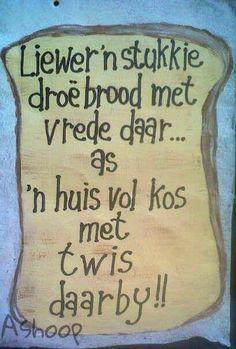 Liewer 'n stukkie
droë brood met
vrede daar...
as
'n huis vol kos
met
twis
daarby!!
Ashoop